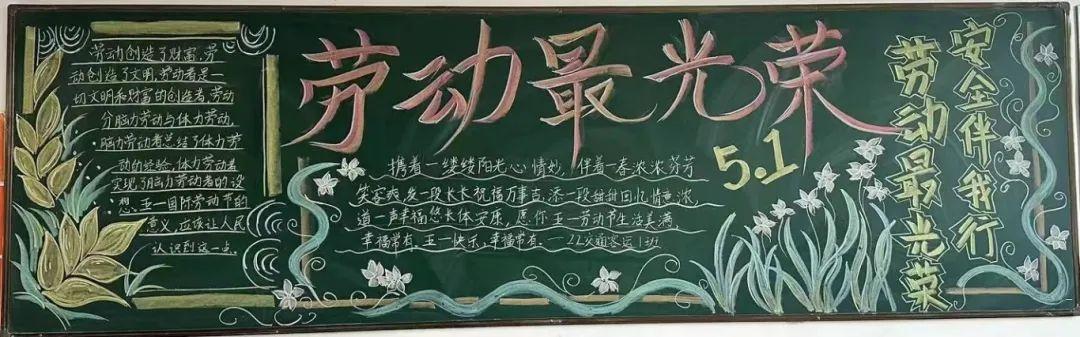 劳动创造了财富,劳
动创造了文明,劳动者是一
切文明和财富的创造者,劳动
分脑力劳动与体力劳动,
脑力劳动者总结了体力劳
动的经验,体力劳动者
实现了脑力劳动者的设
想,五一国际劳动节的
意义,应该让人民
认识到这一点.
劳动最光荣
5.1
携着一缕缕阳光心情妙,伴着一春浓浓芬芳
笑容爽,发一段长长祝福万事吉,添一段甜甜回忆情意浓,
道一声幸福您长体安康,愿你五一劳动节生活美满,
幸福常有,五一快乐,幸福常有.一22交通客运1班
劳动最光荣
安全伴我行